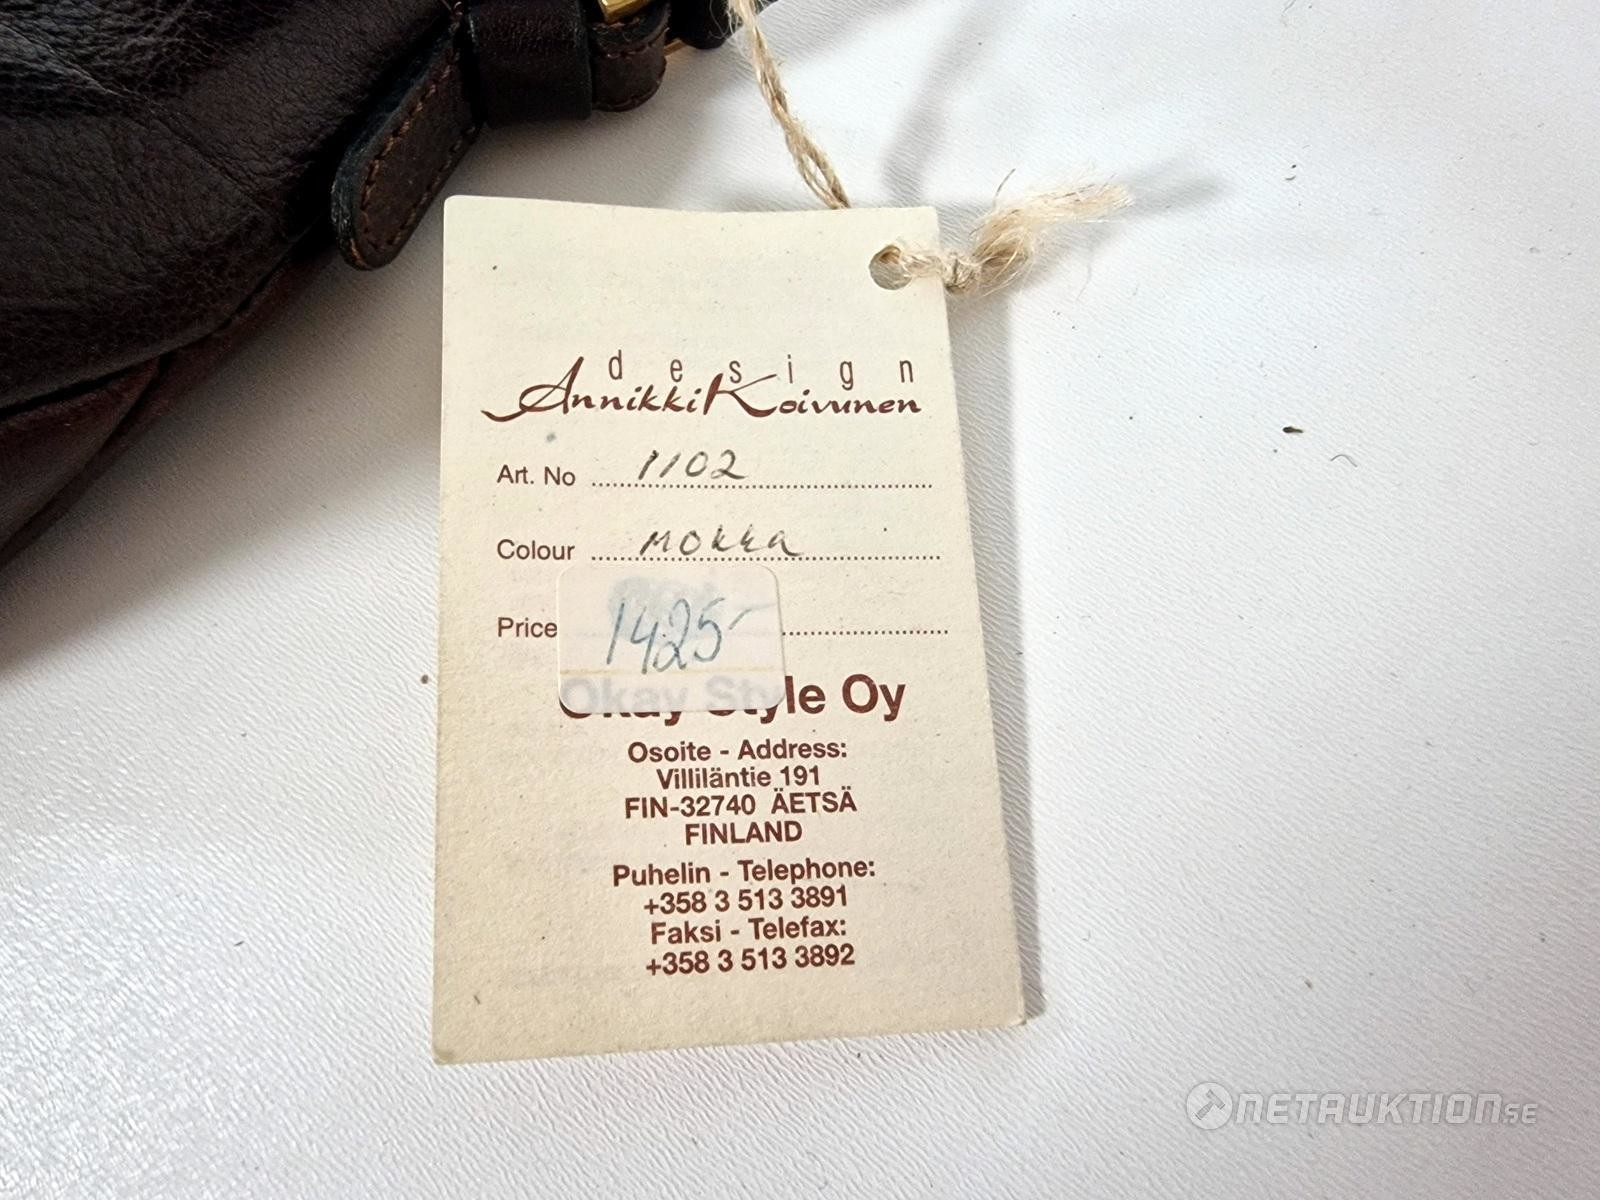 design
Annikki Koivunen
Art. No 1102
Colour MOKKA
Price 1425-
Okay Style Oy
Osoite - Address:
Villiläntie 191
FIN-32740 ÄETSÄ
FINLAND
Puhelin - Telephone:
+358 3 513 3891
Faksi - Telefax:
+358 3 513 3892
NETAUKTION.SE